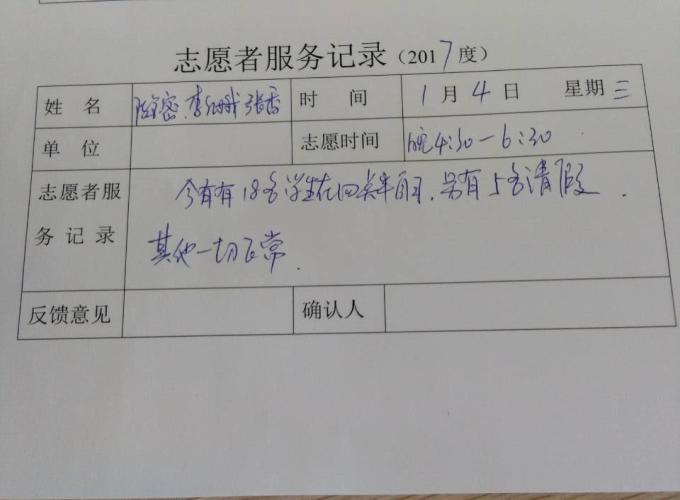 志愿者服务记录（2017度）
姓 名 张雪 时 间 1月4日 星期三
单 位 志愿时间 晚4:30－6:30
志愿者服务记录 今有有18名学生在四点半自习，另有5名请假．
其他一切正常．
反馈意见 确认人